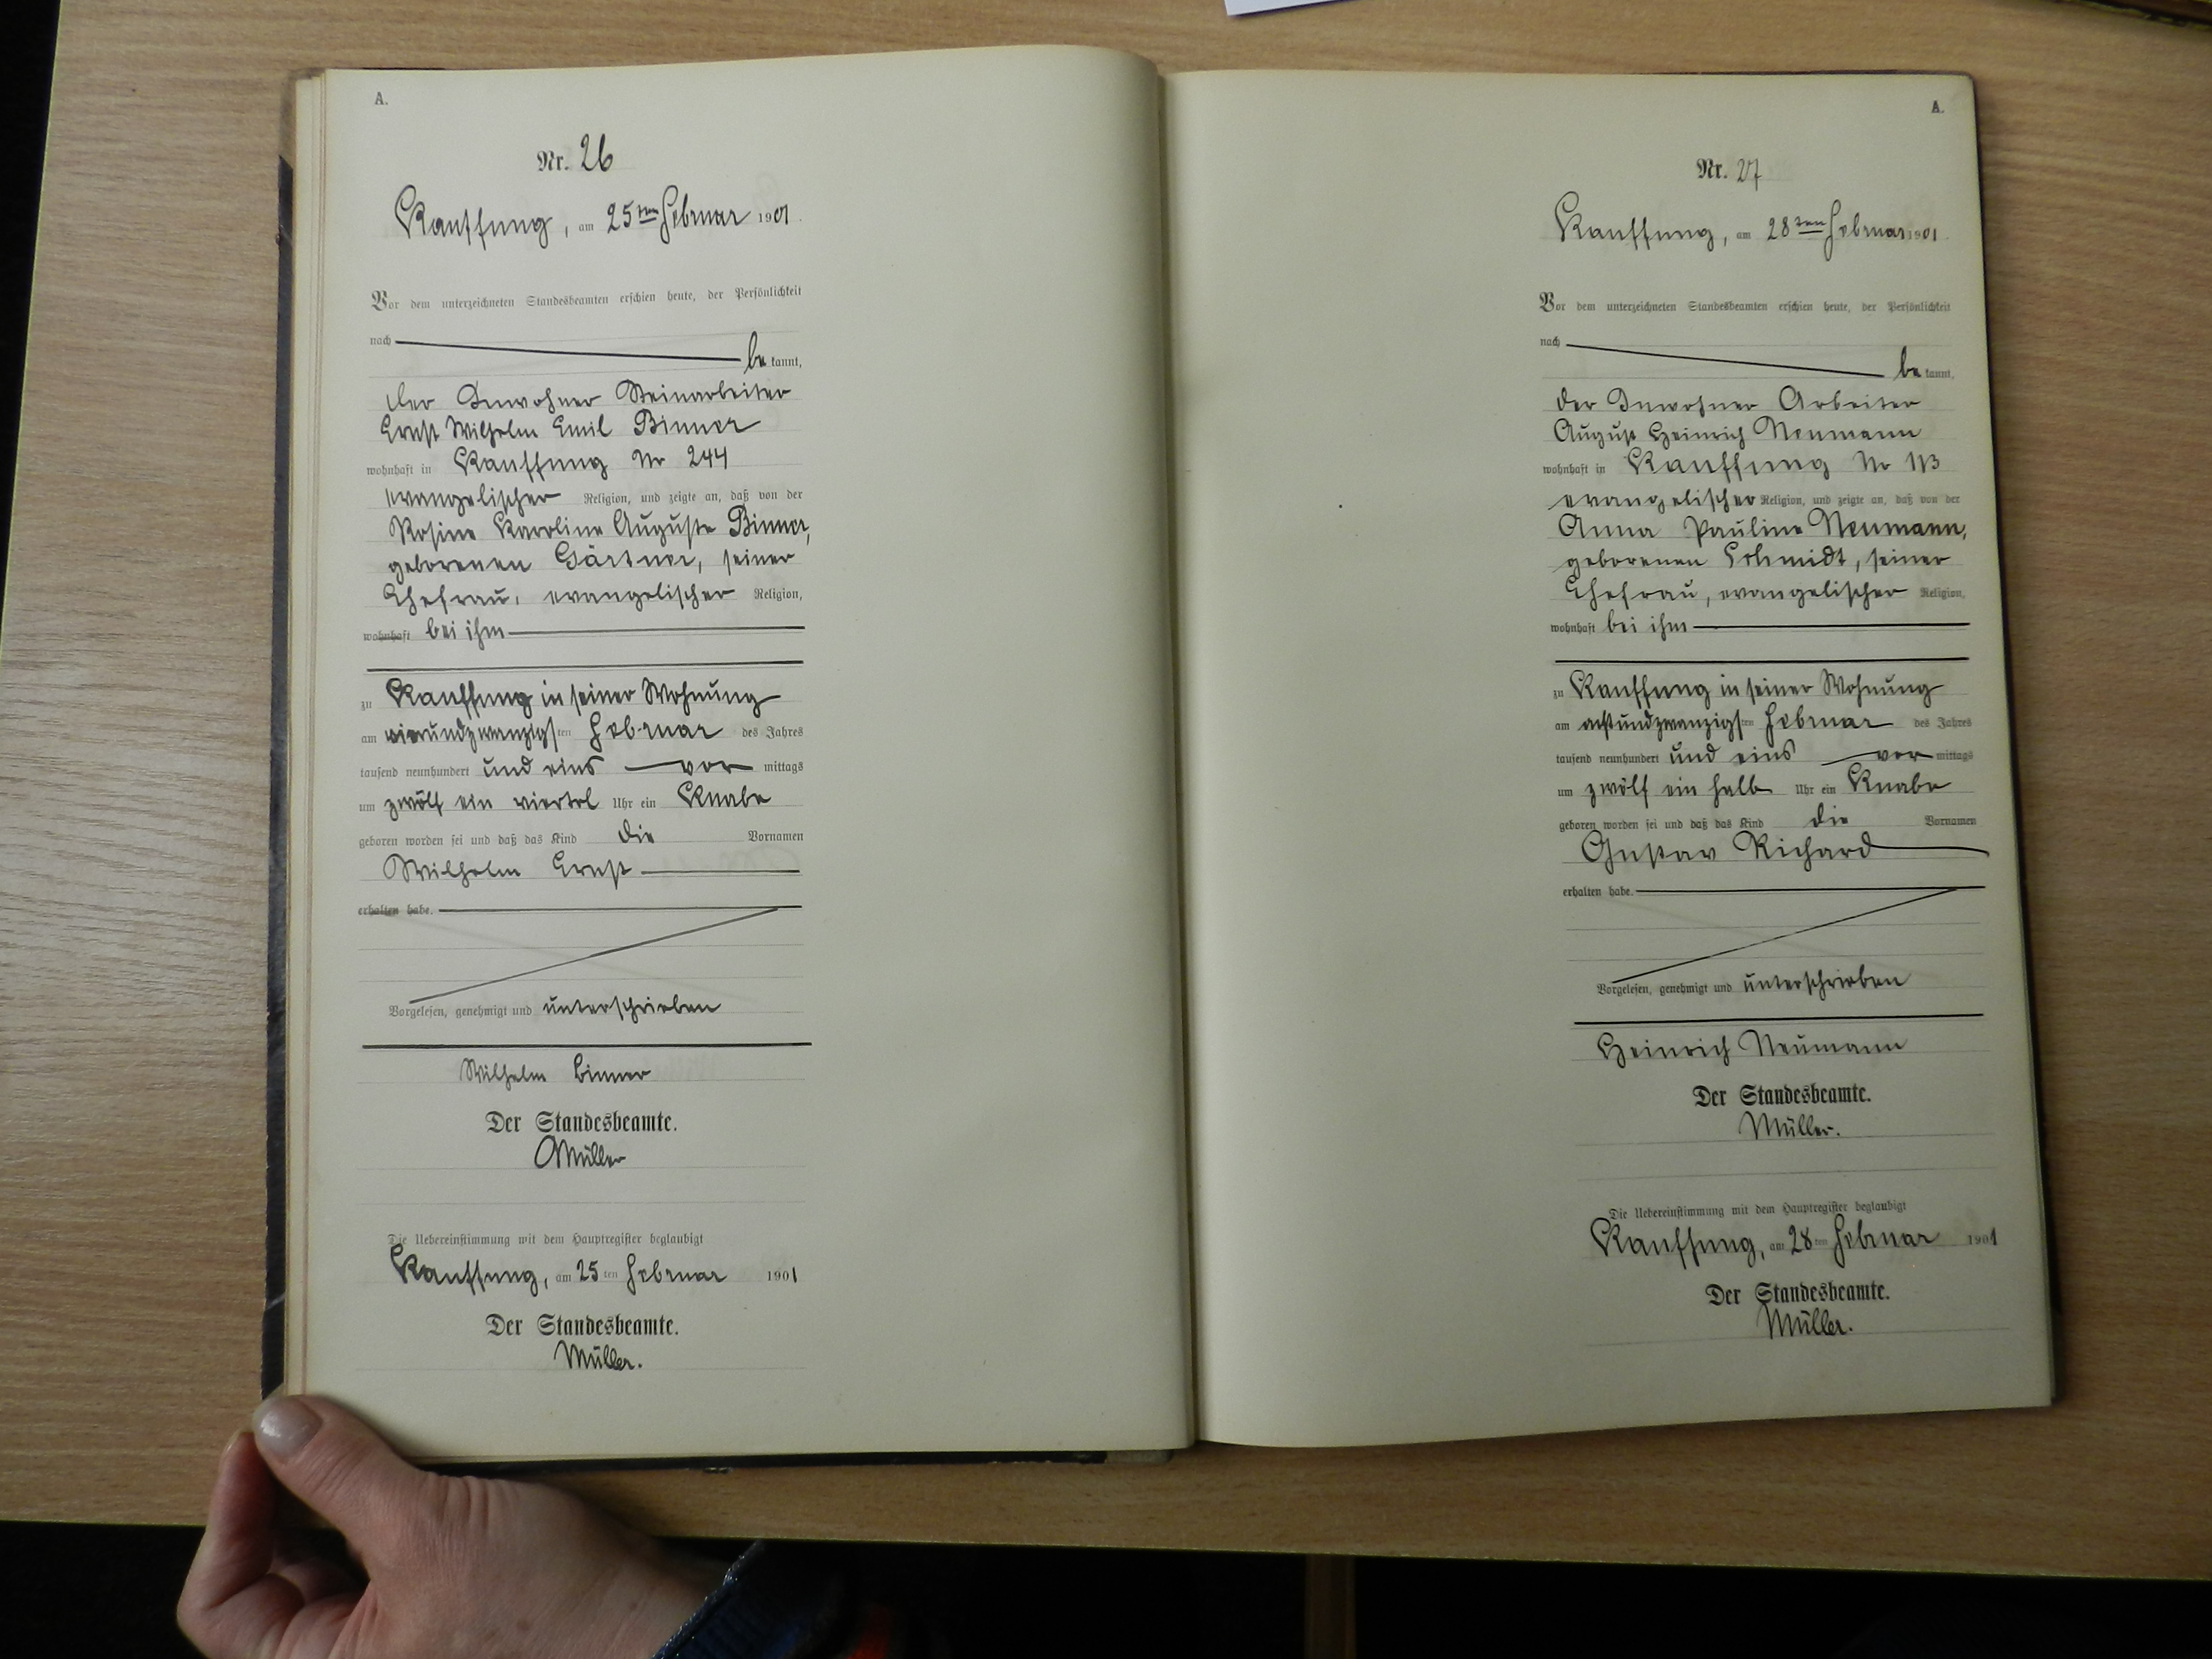 A.
Nr. 26
Kauffung, am 25ten Februar 1901.
Vor dem unterzeichneten Standesbeamten erschien heute, der Persönlichkeit
nach be kannt,
der Inwohner Steinarbeiter
Ernst Wilhelm Emil Binner
wohnhaft in Kauffung Nr 244
evangelischer Religion, und zeigte an, daß von der
Rosine Karoline Auguste Binner,
geborenen Gärtner, seiner
Ehefrau, evangelischer Religion,
wohnhaft bei ihm
zu Kauffung in seiner Wohnung
am vierundzwanzigsten Februar des Jahres
tausend neunhundert und eins vor mittags
um zwölf ein viertel Uhr ein Knabe
geboren worden sei und daß das Kind die Vornamen
Wilhelm Ernst
erhalten habe.
Vorgelesen, genehmigt und unterschrieben
Wilhelm Binner
Der Standesbeamte.
Müller
Die Uebereinstimmung mit dem Hauptregister beglaubigt
Kauffung, am 25ten Februar 1901
Der Standesbeamte.
Müller.
A.
Nr. 27
Kauffung, am 28ten Februar 1901.
Vor dem unterzeichneten Standesbeamten erschien heute, der Persönlichkeit
nach be kannt,
der Inwohner Arbeiter
August Heinrich Neumann
wohnhaft in Kauffung Nr 113
evangelischer Religion, und zeigte an, daß von der
Anna Pauline Neumann,
geborenen Schmidt, seiner
Ehefrau, evangelischer Religion,
wohnhaft bei ihm
zu Kauffung in seiner Wohnung
am achtundzwanzigsten Februar des Jahres
tausend neunhundert und eins vor mittags
um zwölf ein halb Uhr ein Knabe
geboren worden sei und daß das Kind die Vornamen
Gustav Richard
erhalten habe.
Vorgelesen, genehmigt und unterschrieben
Heinrich Neumann
Der Standesbeamte.
Müller.
Die Uebereinstimmung mit dem Hauptregister beglaubigt
Kauffung, am 28ten Februar 1901
Der Standesbeamte.
Müller.